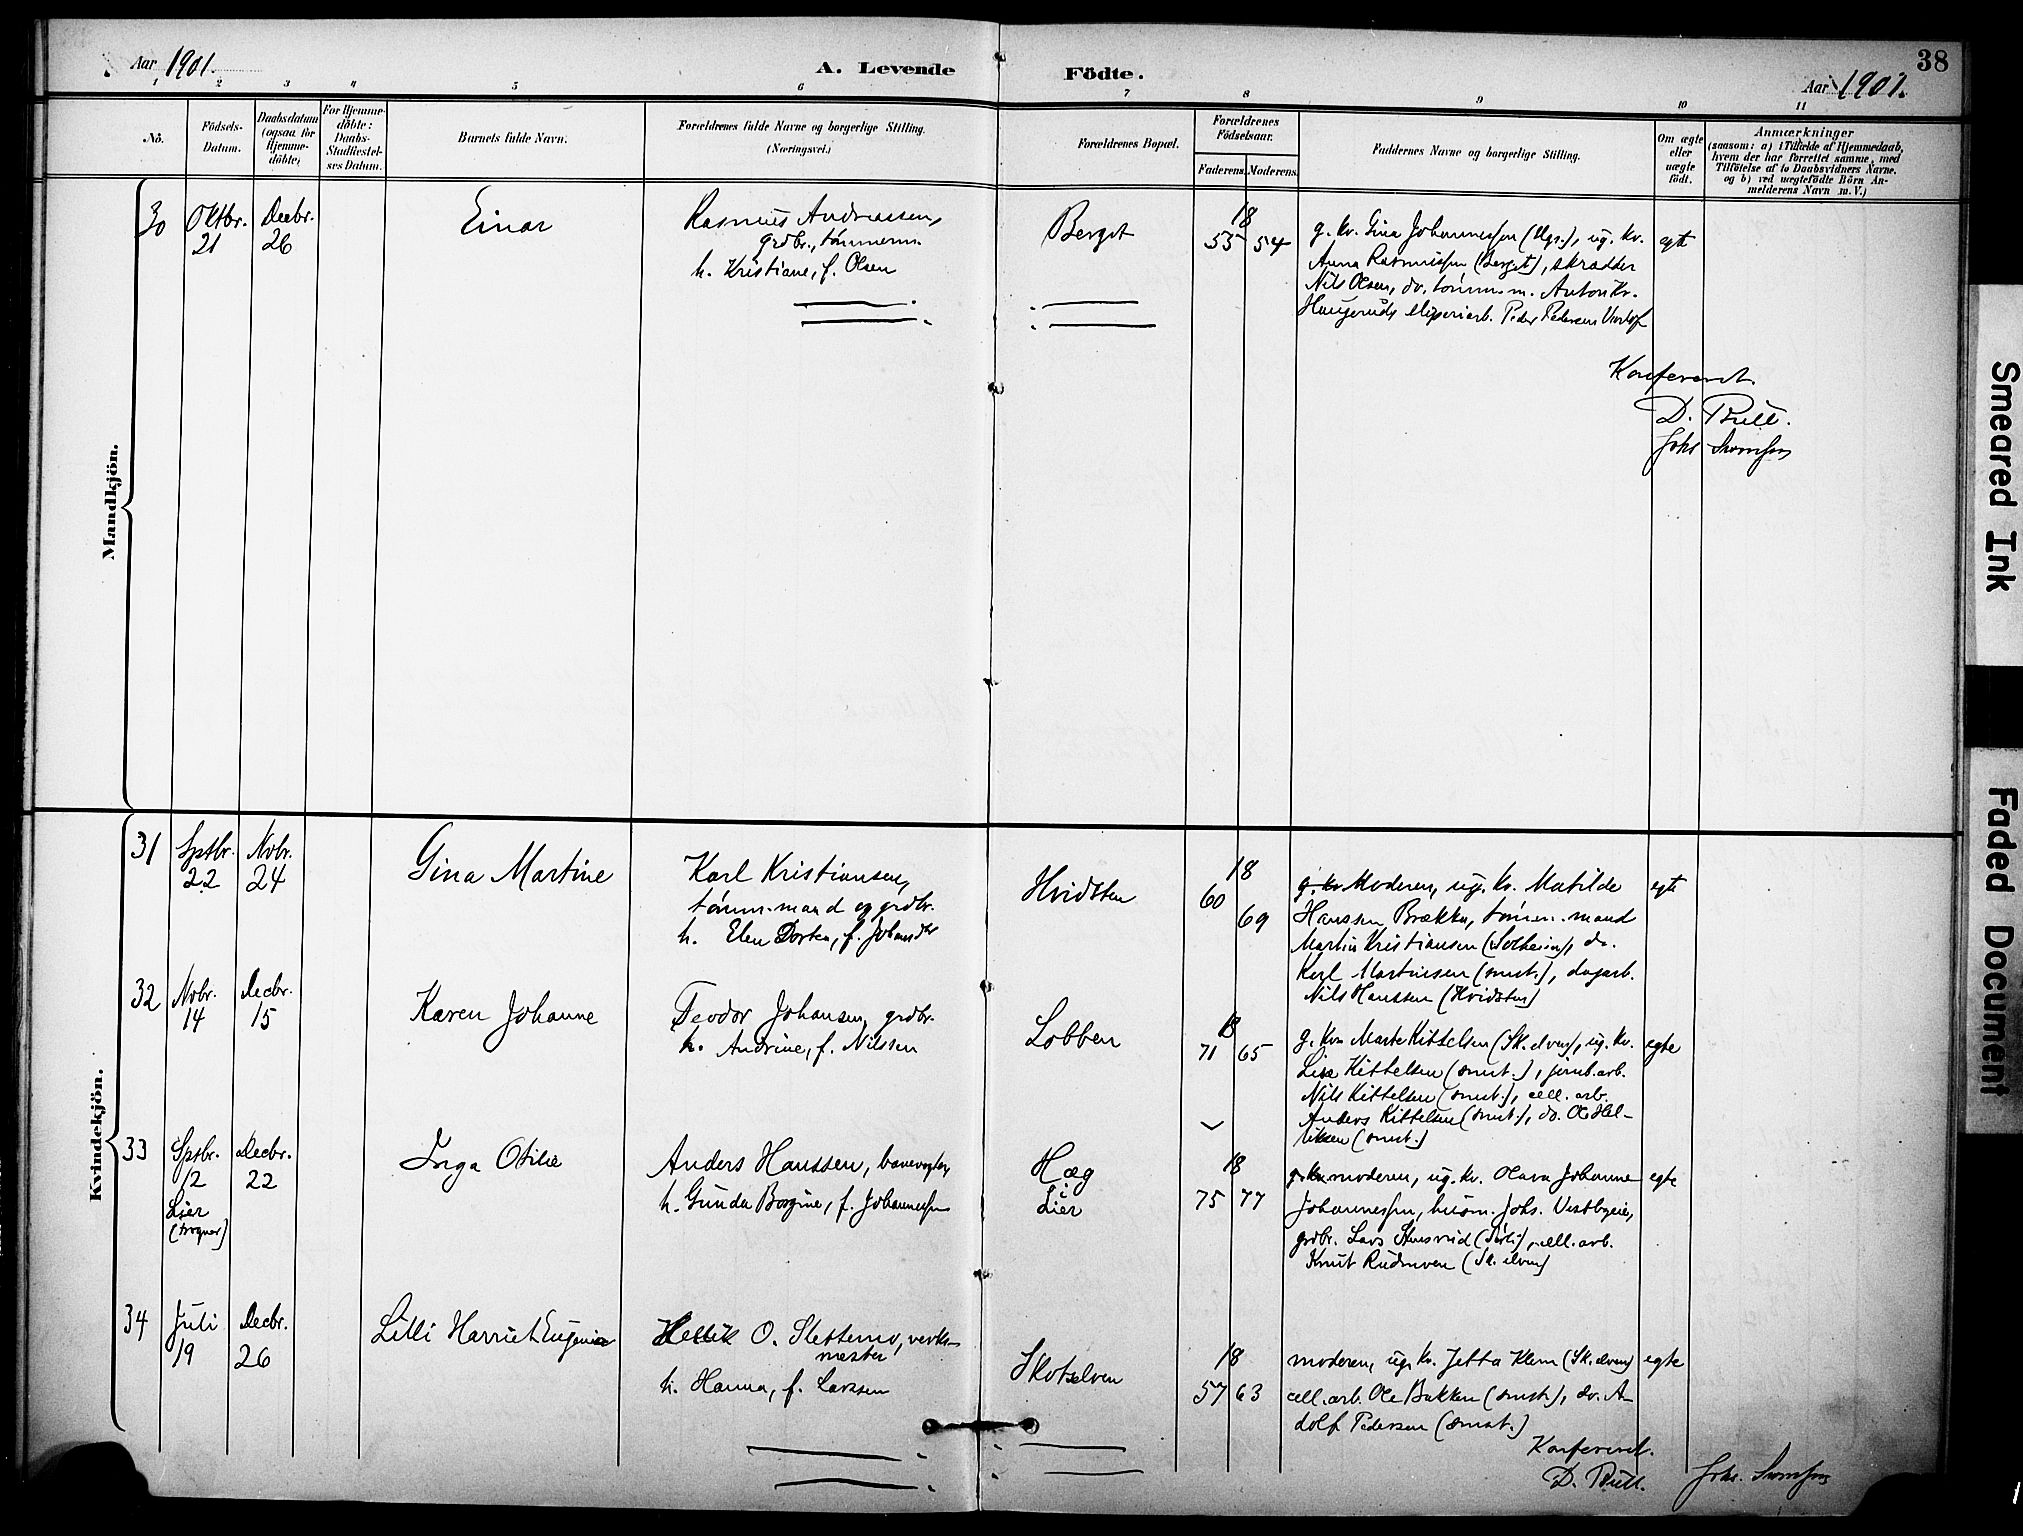 38
Aar 1901.
A. Levende Födte.
Aar 1901.
1 2 3 4 5 6 7 8 9 10 11
No.
Födsels-
Datum.
Daabsdatum
(ogsaa for
Hjemme-
döbte)
For Hjemme-
döbte:
Daabs-
Stadfæstel-
ses Datum.
Barnets fulde Navn.
Forældrenes fulde Navne og borgerlige Stilling.
(Næringsvei.)
Forældrenes Bopæl.
Forældrenes
Födselsaar.
Faderens. Moderens.
Faddernes Navne og borgerlige Stilling.
Om ægte
eller
uægte
födt.
Anmærkninger
(saasom: a) i Tilfælde af Hjemmedaab,
hvem der har forrettet samme, med
Tilföielse af to Daabsvidners Navne,
og b) ved uægtefödte Börn An-
melderens Navn m. V.)
Mandkjön.
30
Oktbr.
21
Decbr.
26
Einar
Rasmus Andreassen,
grdbr., tømmerm.
h. Kristiane, f. Olsen
Berget
18
55 54
g. kv. Gina Johannessen
ug. kv.
Anna Rasmussen (Berget), skrædder
Nils Olsen, do. tømm.m. Anton Kr.
Haugerud, sliperiarb. Peder Pedersen
egte
Konfereret
D. Bull.
Johs
Kvindekjön.
31
Sptbr.
22
Novbr.
24
Gina Martine
Karl Kristiansen,
tømm.mand og grdbr.
h. Elen Dortea, f.
Hvidsten
18
60
69
g. kv. Moderen, ug. kv. Matilde
Hanssen Brække, tømm.mand
Martin Kristiansen (Solheim), do.
Karl Martinsen (smst.), dagarb.
Nils Hanssen (Hvidsten)
egte
32
Novbr.
14
Decbr.
15
Karen Johanne
Teodor Johansen, grdbr.
h. Andrine, f. Nilssen
Lobben
18
71 65
g. kv. Marte Kittelsen (Sk.elven), ug. kv.
Lise Kittelsen (smst.), jernb.arb.
Nils Kittelsen (smst.), cell. arb.
Anders Kittelsen (smst.), do. Ole Hel-
liksen (smst.)
egte
33
Sptbr.
12
Lier
(Frogner)
Decbr.
22
Inga Otilie
Anders Hanssen, banevogter,
h. Gunda Borgine, f. Johannessen
Hæg
i
Lier
18
75 77
g. kv. moderen, ug. kv. Olava Johanne
Johannessen, husm. Johs. Vestbyeie,
grdbr. Lars
cell.arb.
Knut Rudmoen (Sk.elven)
egte
34
Juli
19
Decbr.
26
Lilli Harriet Eugenie
Hellik O. Slettemo, verks-
mester
h. Hanna, f. Larssen
Skotselven
18
57 63
moderen, ug. kv. Jetta Klem (Sk.elven)
cell.arb. Ole Bakken (smst.), do. A-
dolf Pedersen (smst.)
egte
Konfereret.
D. Bull.
Johs.
Smeared Ink
Faded Document